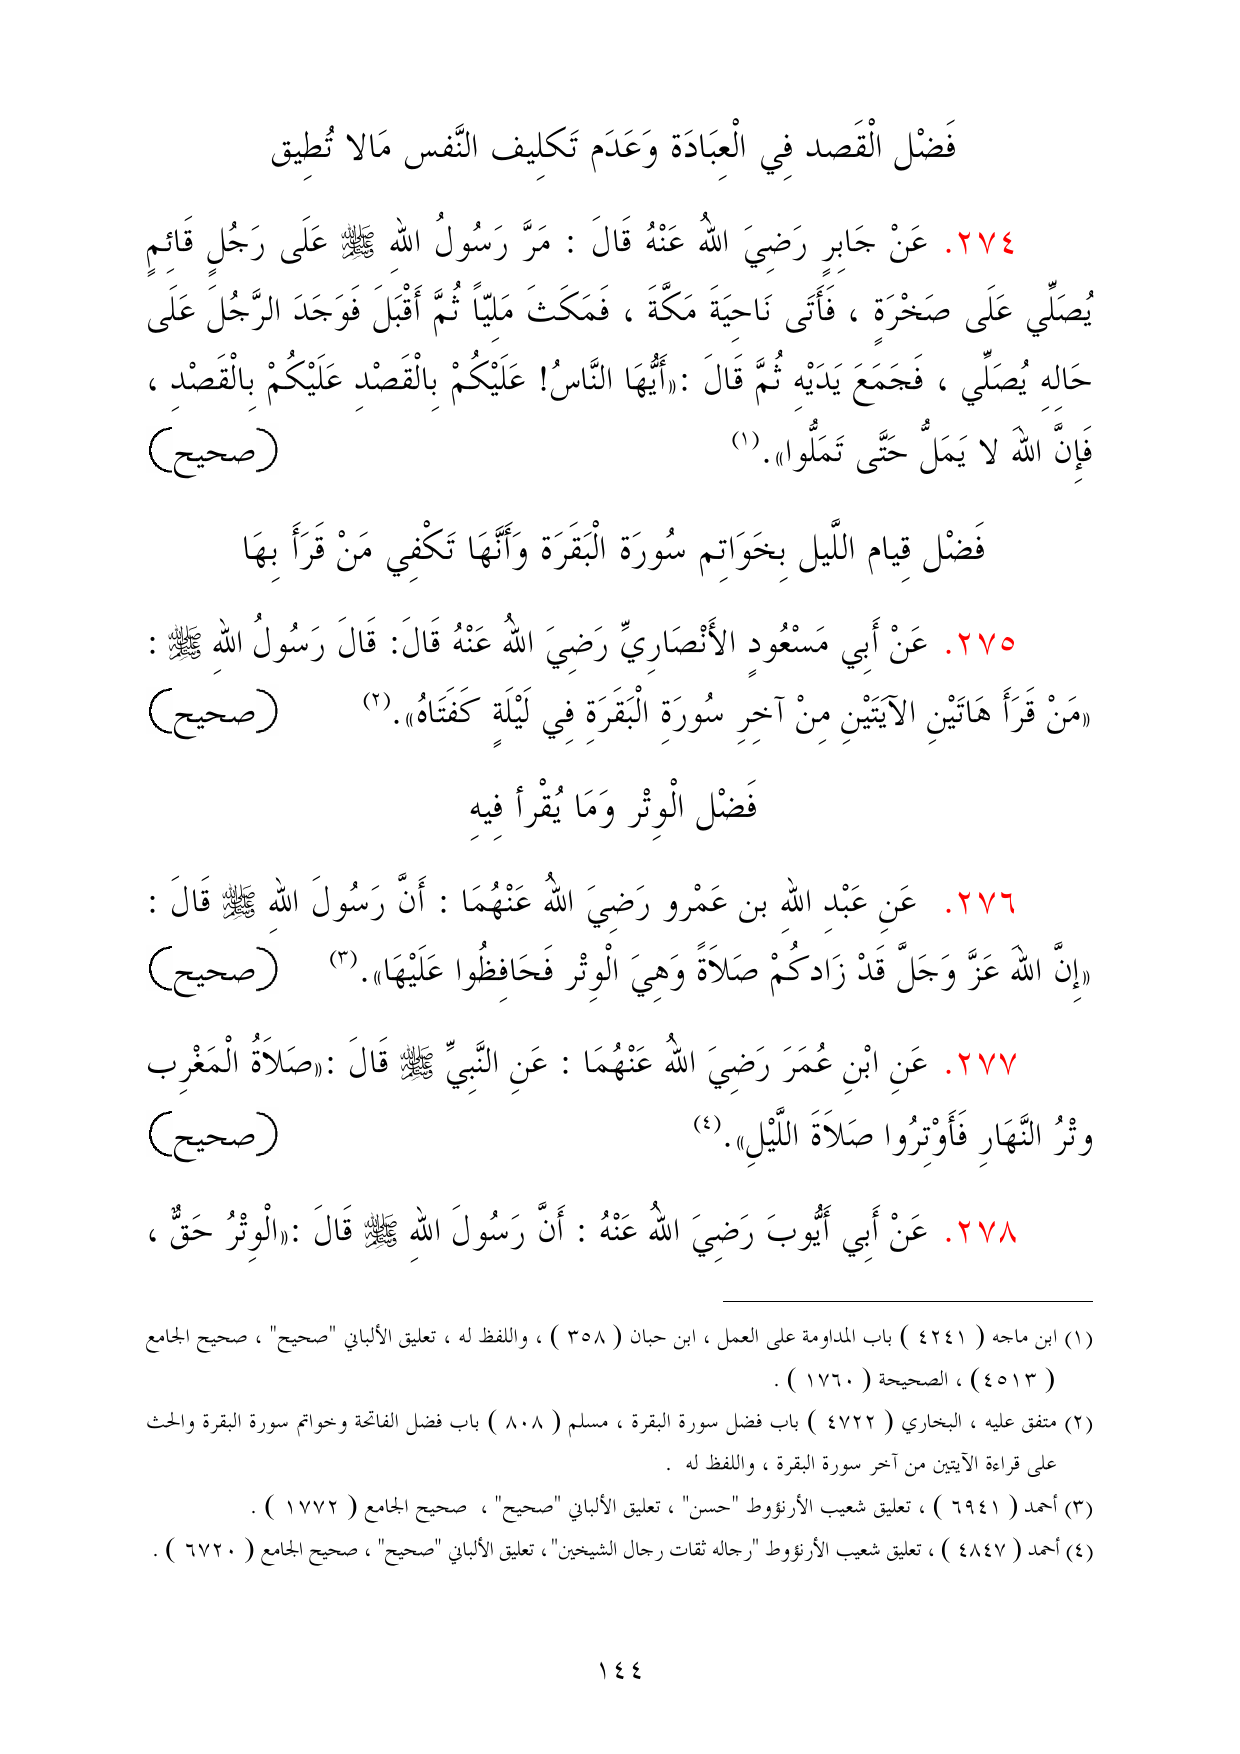 فَضْل الْقَصد فِي الْعِبَادَة وَعَدَم تَكلِيف النَّفس مَالا تُطِيق
٢٧٤. عَنْ جَابِرٍ رَضِيَ اللهُ عَنْهُ قَالَ : مَرَّ رَسُولُ اللهِ ﷺ عَلَى رَجُلٍ قَائِمٍ
يُصَلِّي عَلَى صَخْرَةٍ ، فَأَتَى نَاحِيَةَ مَكَّةَ ، فَمَكَثَ مَلِيّاً ثُمَّ أَقْبَلَ فَوَجَدَ الرَّجُلَ عَلَى
حَالِهِ يُصَلِّي ، فَجَمَعَ يَدَيْهِ ثُمَّ قَالَ :«أَيُّهَا النَّاسُ! عَلَيْكُمْ بِالْقَصْدِ عَلَيْكُمْ بِالْقَصْدِ ،
فَإِنَّ اللهَ لا يَمَلُّ حَتَّى تَمَلُّوا».(١) (صحيح)
فَضْل قِيام اللَّيل بِخَوَاتِم سُورَة الْبَقَرَة وَأَنَّهَا تَكْفِي مَنْ قَرَأَ بِهَا
٢٧٥. عَنْ أَبِي مَسْعُودٍ الأَنْصَارِيِّ رَضِيَ اللهُ عَنْهُ قَالَ: قَالَ رَسُولُ اللهِ ﷺ :
«مَنْ قَرَأَ هَاتَيْنِ الآيَتَيْنِ مِنْ آخِرِ سُورَةِ الْبَقَرَةِ فِي لَيْلَةٍ كَفَتَاهُ».(٢) (صحيح)
فَضْل الْوِتْر وَمَا يُقْرأ فِيهِ
٢٧٦. عَنِ عَبْدِ اللهِ بن عَمْرو رَضِيَ اللهُ عَنْهُمَا : أَنَّ رَسُولَ اللهِ ﷺ قَالَ :
«إِنَّ اللهَ عَزَّ وَجَلَّ قَدْ زَادكُمْ صَلاَةً وَهِيَ الْوِتْر فَحَافِظُوا عَلَيْهَا».(٣) (صحيح)
٢٧٧. عَنِ ابْنِ عُمَرَ رَضِيَ اللهُ عَنْهُمَا : عَنِ النَّبِيِّ ﷺ قَالَ :«صَلاَةُ الْمَغْرِب
وِتْرُ النَّهَارِ فَأَوْتِرُوا صَلاَةَ اللَّيْلِ».(٤) (صحيح)
٢٧٨. عَنْ أَبِي أَيُّوبَ رَضِيَ اللهُ عَنْهُ : أَنَّ رَسُولَ اللهِ ﷺ قَالَ :«الْوِتْرُ حَقٌّ ،
(١) ابن ماجه ( ٤٢٤١ ) باب المداومة على العمل ، ابن حبان ( ٣٥٨ ) ، واللفظ له ، تعليق الألباني "صحيح" ، صحيح الجامع
( ٤٥١٣) ، الصحيحة ( ١٧٦٠ ) .
(٢) متفق عليه ، البخاري ( ٤٧٢٢ ) باب فضل سورة البقرة ، مسلم ( ٨٠٨ ) باب فضل الفاتحة وخواتم سورة البقرة والحث
على قراءة الآيتين من آخر سورة البقرة ، واللفظ له .
(٣) أحمد ( ٦٩٤١ ) ، تعليق شعيب الأرنؤوط "حسن" ، تعليق الألباني "صحيح" ، صحيح الجامع ( ١٧٧٢ ) .
(٤) أحمد ( ٤٨٤٧ ) ، تعليق شعيب الأرنؤوط "رجاله ثقات رجال الشيخين"، تعليق الألباني "صحيح" ، صحيح الجامع ( ٦٧٢٠ ) .
١٤٤